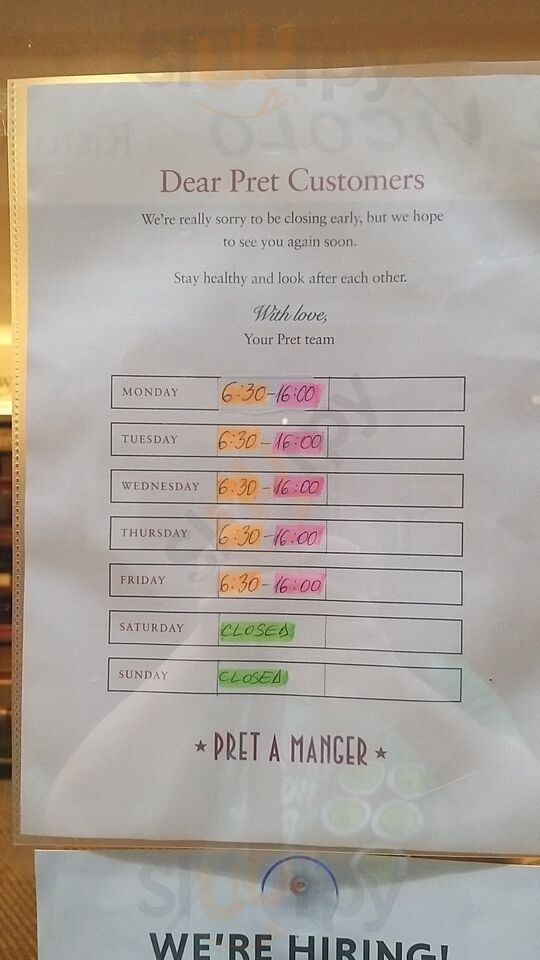 Sluurpy
VICOLO
Risto
Dear Pret Customers
We're really sorry to be closing early, but we hope
to see you again soon.
Stay healthy and look after each other.
With love,
Your Pret team
MONDAY 6:30-16:00
TUESDAY 6:30-16:00
WEDNESDAY 6:30-16:00
THURSDAY 6:30-16:00
FRIDAY 6:30-16:00
SATURDAY CLOSED
SUNDAY CLOSED
★ PRET A MANGER ★
Sluurpy
WE'RE HIRING!